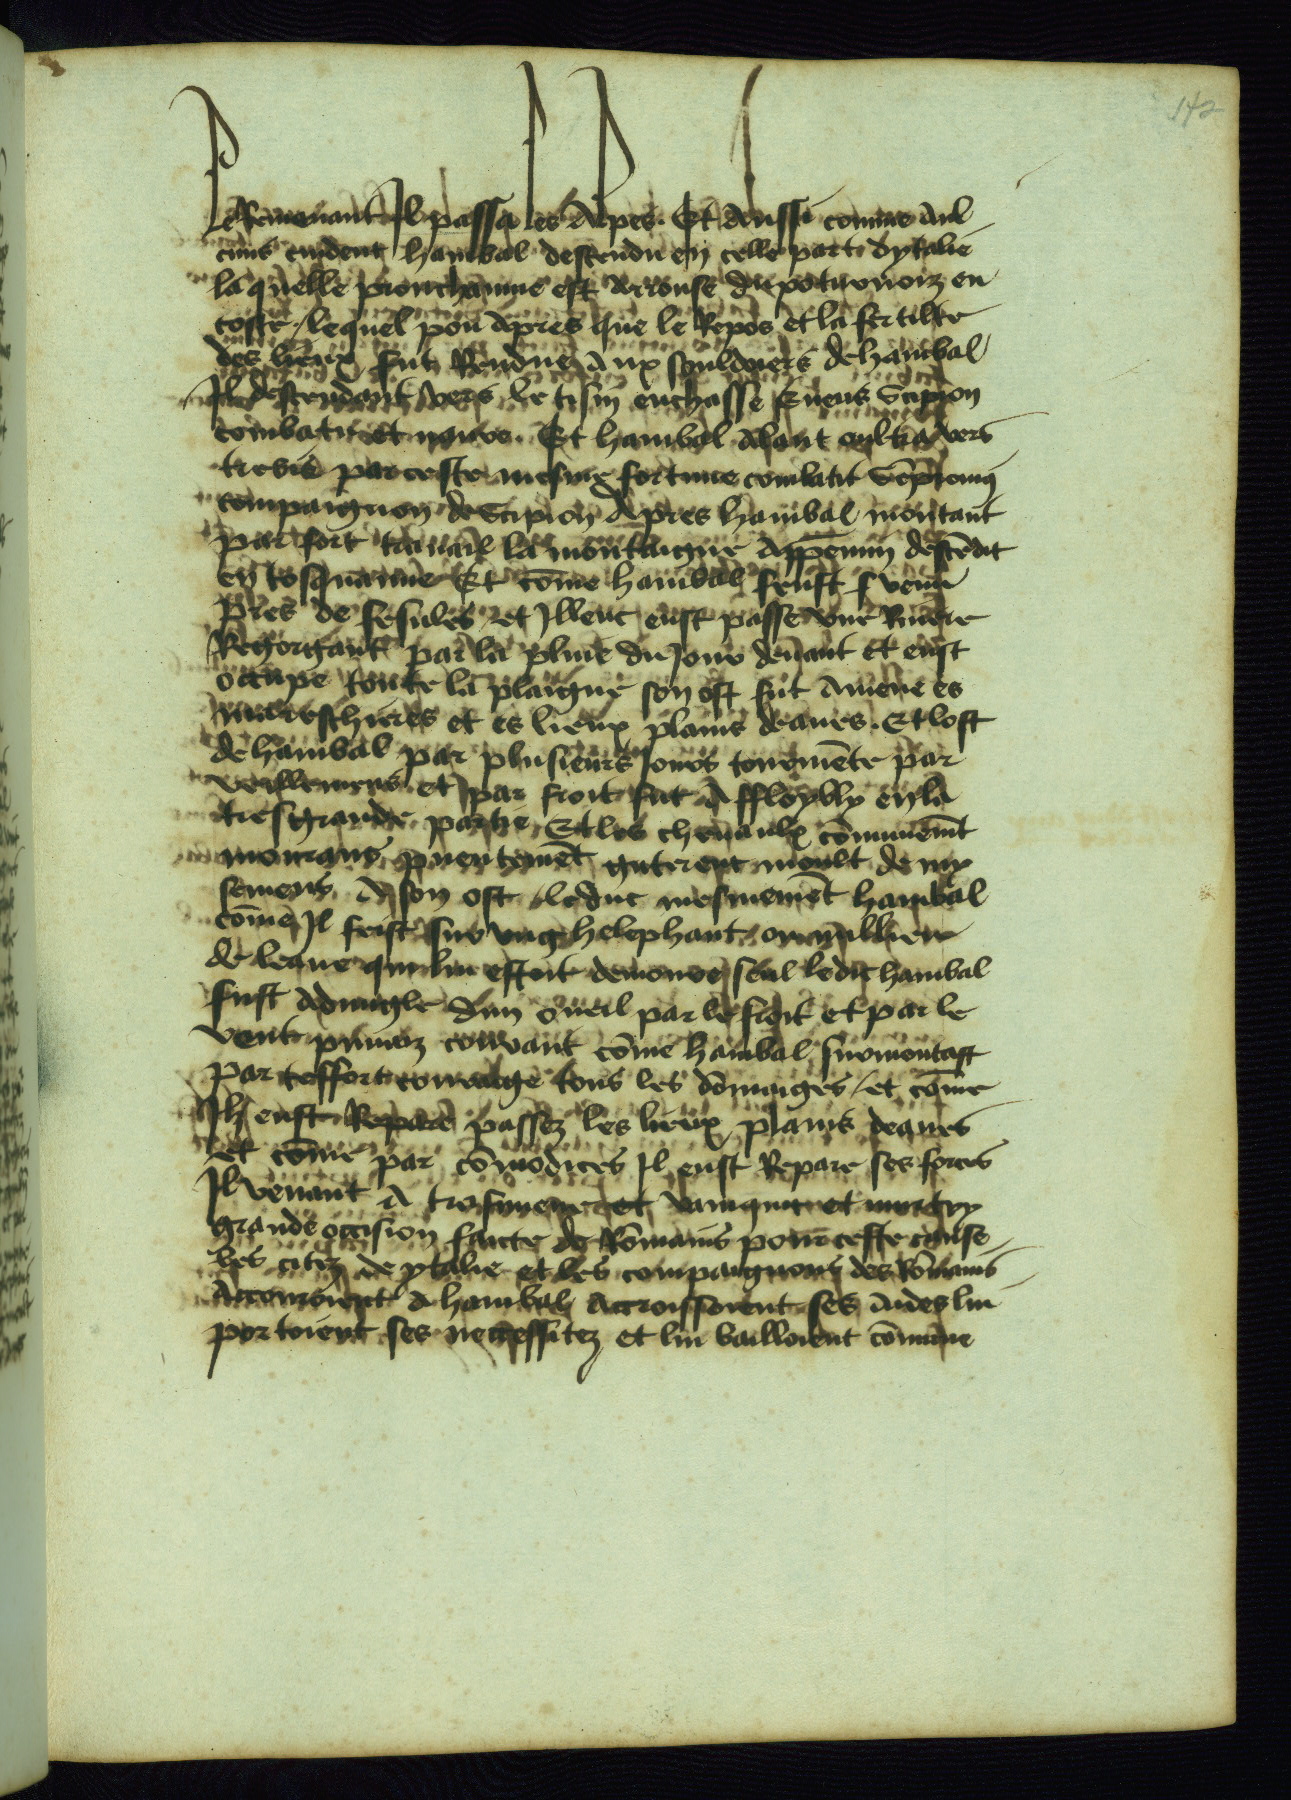 142
Le Remenant Il passa les Alpes. Et Aussi comme Aul
cuns cuident hanibal descendu en celle part dytalie
la quelle prouchainne est Arrouse du po
coste / lequel pou Apres que le Repos et la fertilite
des lieux fut Rendue Aux souldoiers de hanibal
Il descendant vers le tisin enchasse Scipion
combatu et navre. Et hanibal Alant oultre vers
trebie par ceste mesme fortune combatit
compaignon de Scipion Apres hanibal montant
par fort travail la montaigne Appenin descēdit
en tosquanne Et cōme hanibal feust venu
pres de fesules et Illeuc eust passe une Riviere
Regorgant par la pluie du Jour devant et eust
occupe toute la plaigne son ost fut Amene es
et es lieux plains deaues. Et lost
de hanibal par plusieurs Jours tourmēte par
veillemens et par froit fut Affloybly en la
tresgrande partie Et les chevaulx cōmunemēt
mourans puentemēt moult de
A son ost / leduc mesmemēt hanibal
cōme Il feist sur ung helephant ou millieu
de leaue qui lui estoit demoure seul ledit hanibal
fust Adveugle dun oueil par le froit et par le
vent courant cōme hanibal surmontast
par courage tous les dōmaiges / et cōme
Il eust Repare passez les lieux plains deaues
et cōme par cōmodites Il eust Repare ses forces
Il venant A et vainquit et
grande occision faicte de Rōmains pour ceste cause
les citez de ytalie et les compaignons des Rōmains
Accouroient A hanibal Accroissoient ses Aides lui
portoient ses neccessitez et lui bailloient cōmune